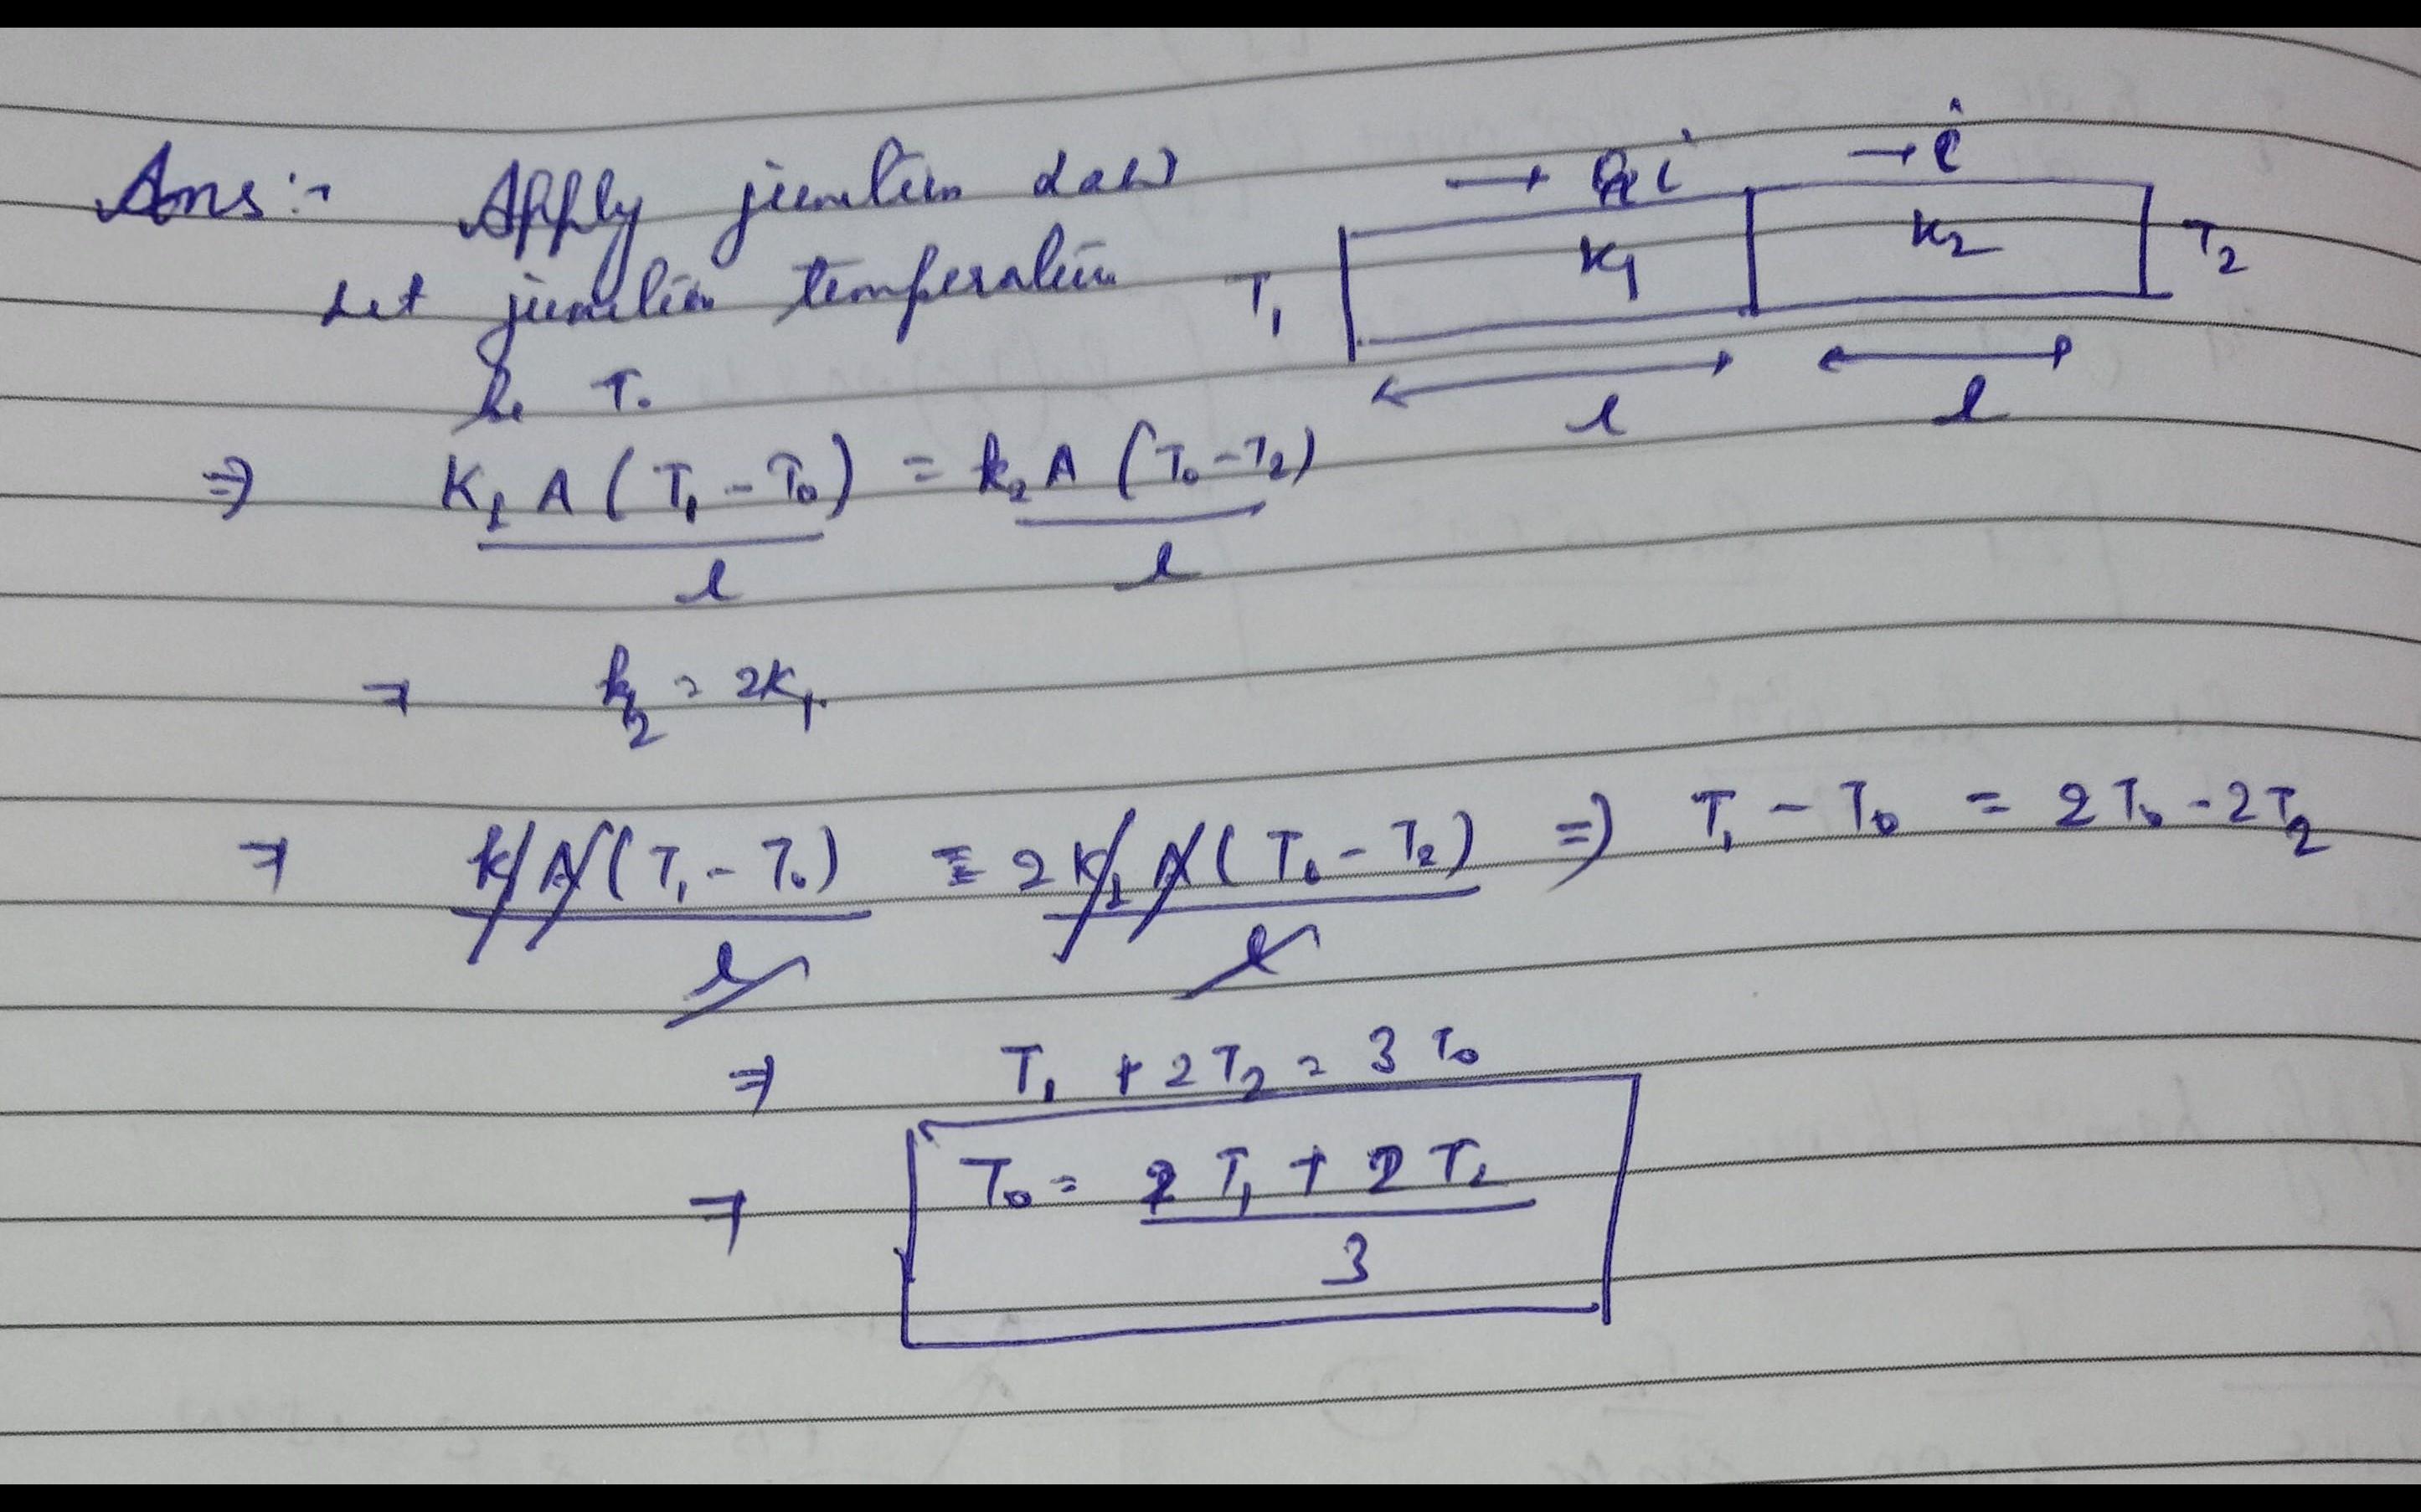 Ans :- Apply junction Law
Let junction temperature
be T₀
→ i → i
T₁ K₁ K₂ T₂
l l
⇒ K₁ A (T₁ - T₀) / l = k₂ A (T₀ - T₂) / l
⇒ k₂ = 2K₁.
⇒ K₁ A (T₁ - T₀) / l = 2 K₁ A (T₀ - T₂) / l ⇒ T₁ - T₀ = 2T₀ - 2T₂
⇒ T₁ + 2T₂ = 3T₀
⇒ T₀ = 2T₁ + 2T₂ / 3